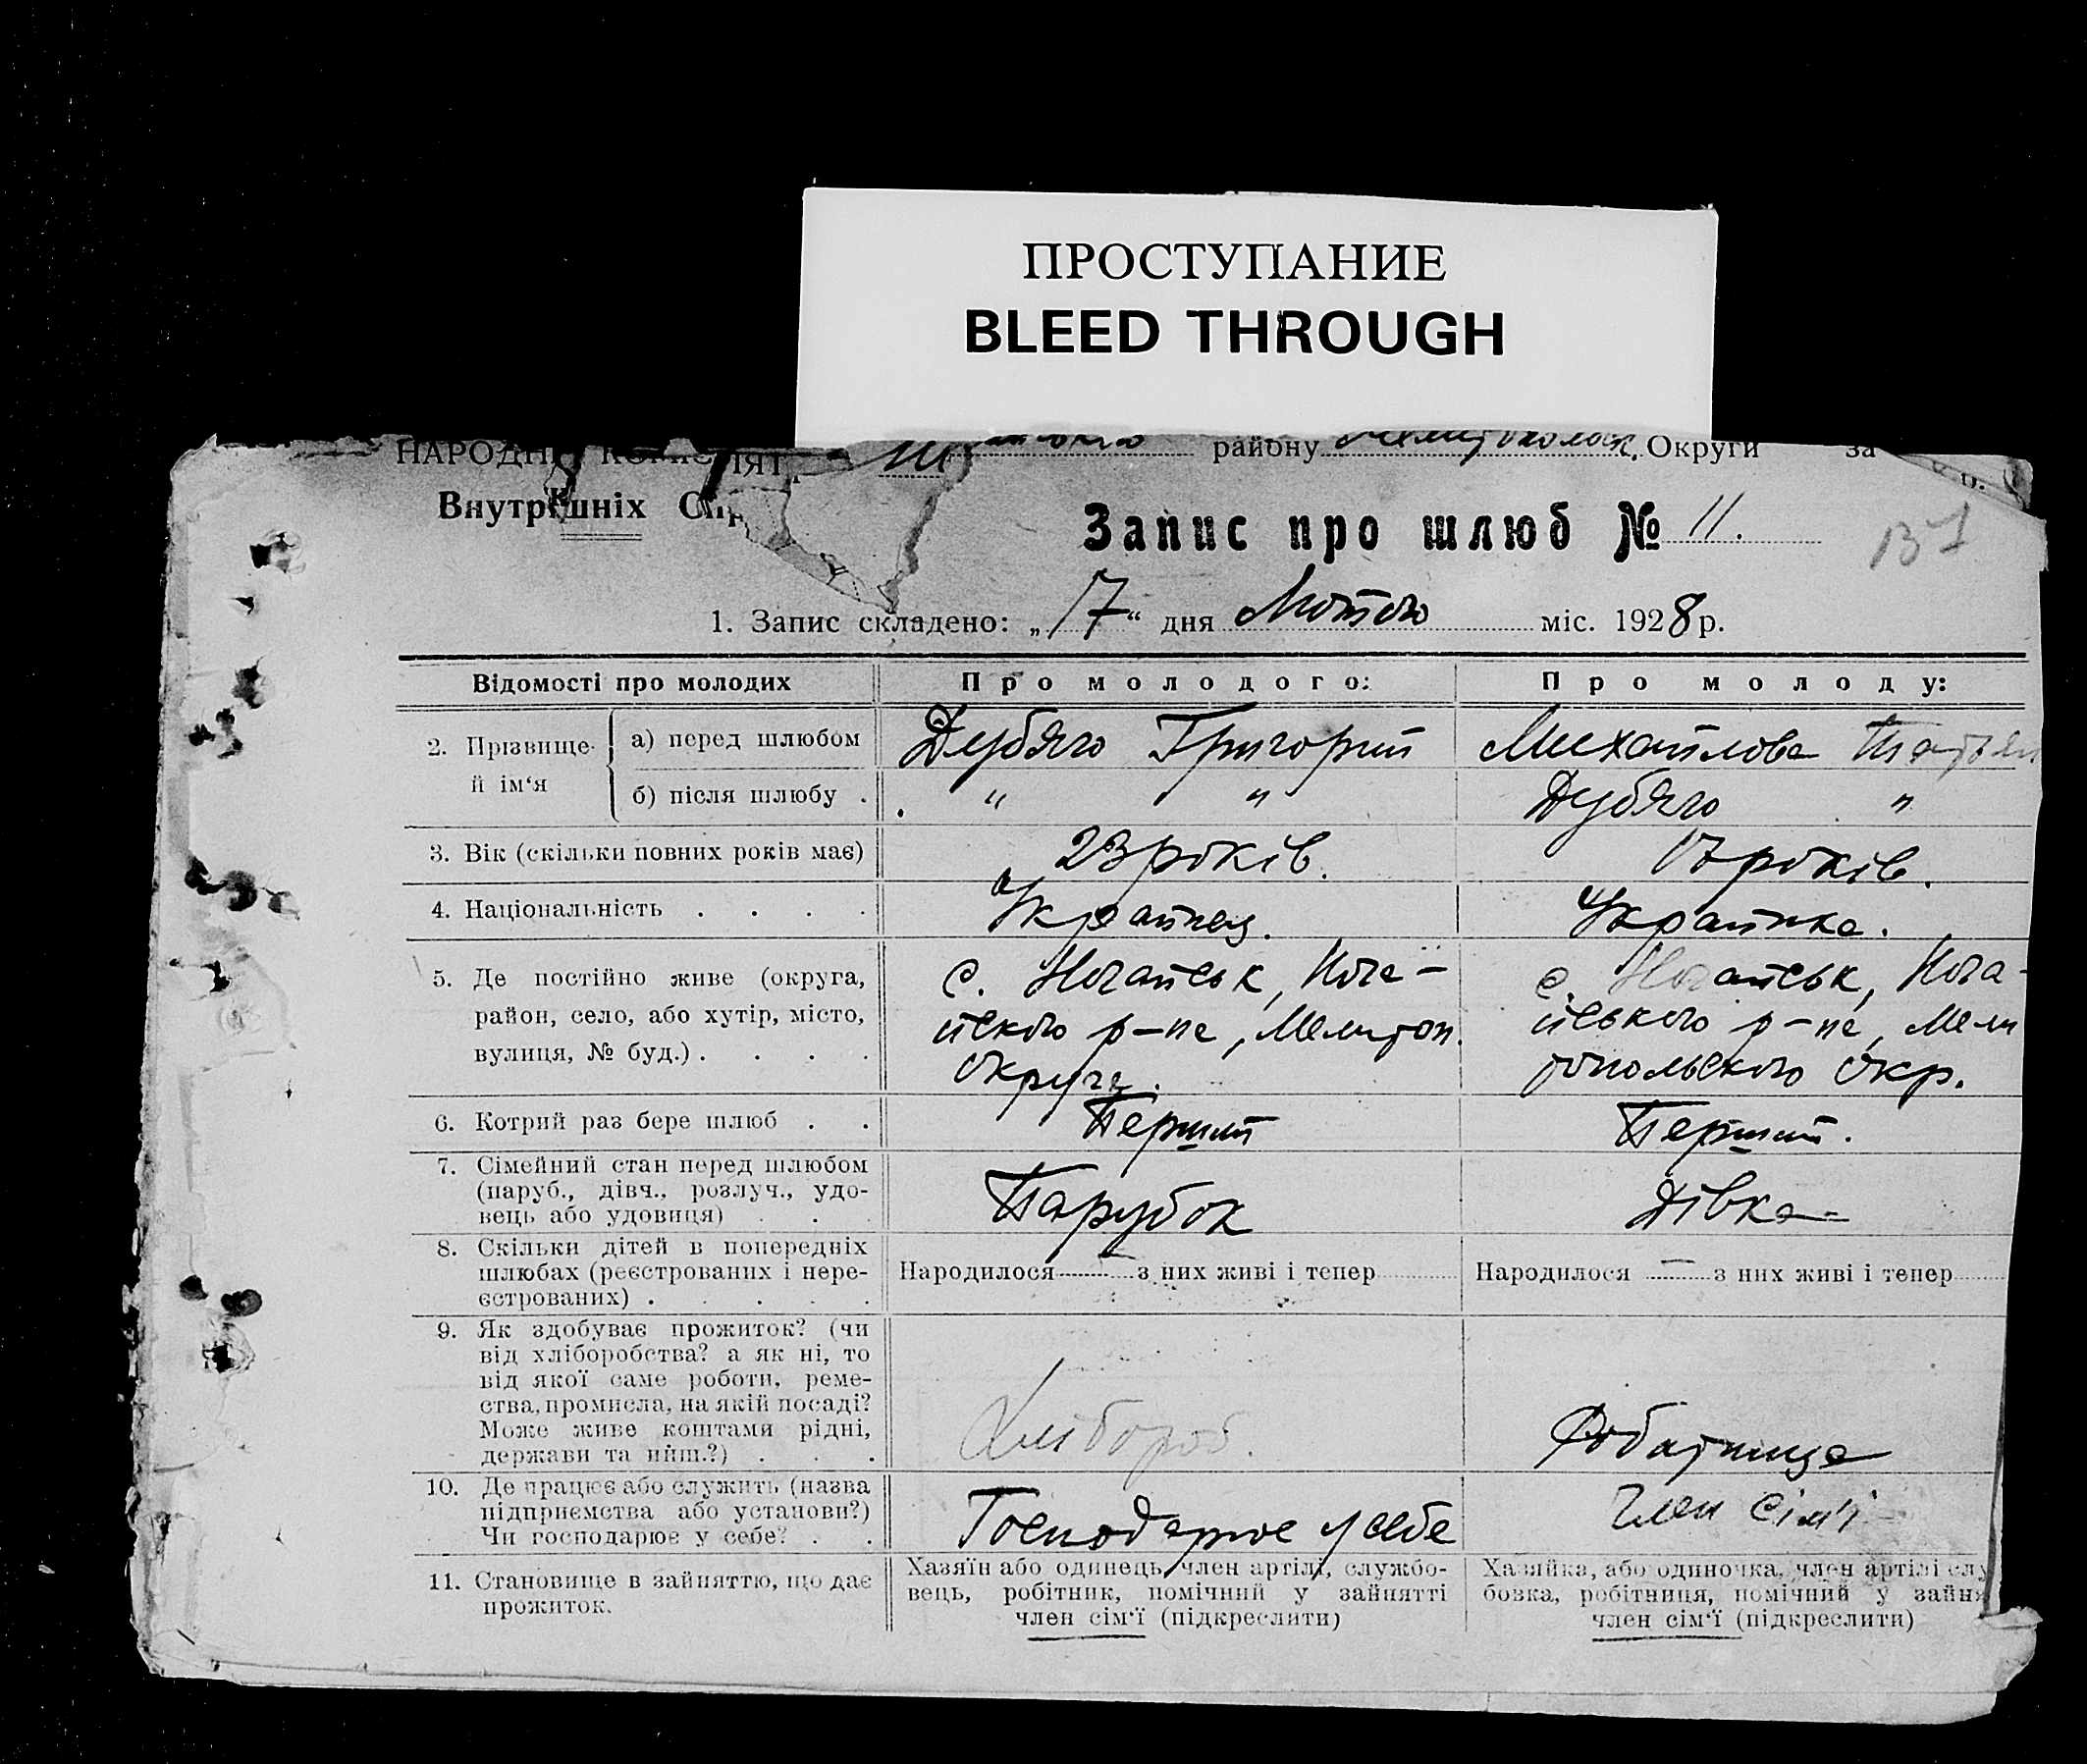 ПРОСТУПАНИЕ
BLEED THROUGH
НАРОДНІ району Округи за
Внутрішніх
Запис про шлюб № 11.
137
1. Запис складено: „17“ дня Лютого міс. 1928 р.
Відомості про молодих Про молодого: Про молоду:
2. Прізвище й ім‘я
а) перед шлюбом Дубяго Григорий Михайлова
б) після шлюбу . " " Дубяго "
3. Вік (скільки повних років має) 23 років. 17 років.
4. Національність . . . . Украінец. Украінка.
5. Де постійно живе (округа, район, село, або хутір, місто, вулиця, № буд.) . . . .
с. Ногайськ, Нога-
йского р-на, Мелитоп.
Округи.
с. Ногайськ, Нога-
йського р-на, Мели
топольского Окр.
6. Котрий раз бере шлюб . . Перший Перший.
7. Сімейний стан перед шлюбом
(паруб., дівч., розлуч., удо-
вець або удовиця) . . .
Парубок Дівка
8. Скільки дітей в попередніх
шлюбах (реєстрованих і нере-
єстрованих) . . . . .
Народилося — з них живі і тепер Народилося — з них живі і тепер
9. Як здобуває прожиток? (чи
від хліборобства? а як ні, то
від якої саме роботи, реме-
ства, промисла, на якій посаді?
Може живе коштами рідні,
держави та инш.?) . . .
Хлібороб. Робатница
10. Де працює або служить (назва
підприємства або установи?)
Чи господарює у себе? . .
Господарює у себе Член сім'ї
11. Становище в зайняттю, що дає
прожиток.
Хазяїн або одинець, член артілі, службо-
вець, робітник, помічний у зайнятті
член сім‘ї (підкреслити)
Хазяйка, або одиночка, член артілі слу
бовка, робітниця, помічний у зайня
член сім‘ї (підкреслити)